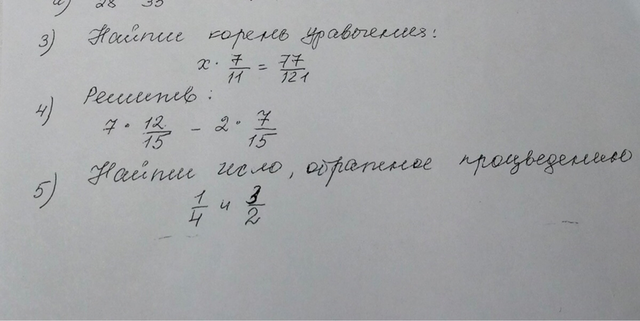 а) 28 35
3) Найти корень уравнения:
x · 7/11 = 77/121
4) Решить:
7 · 12/15 - 2 · 7/15
5) Найти число, обратное произведению
1/4 и 3/2